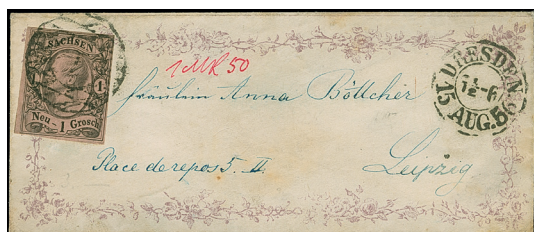 SACHSEN
1
Neu - 1 Grosch
1 MR 50
DRESDEN
15 AUG. 56
Fräulein Anna Böttcher
Place de repos 5. II
Leipzig